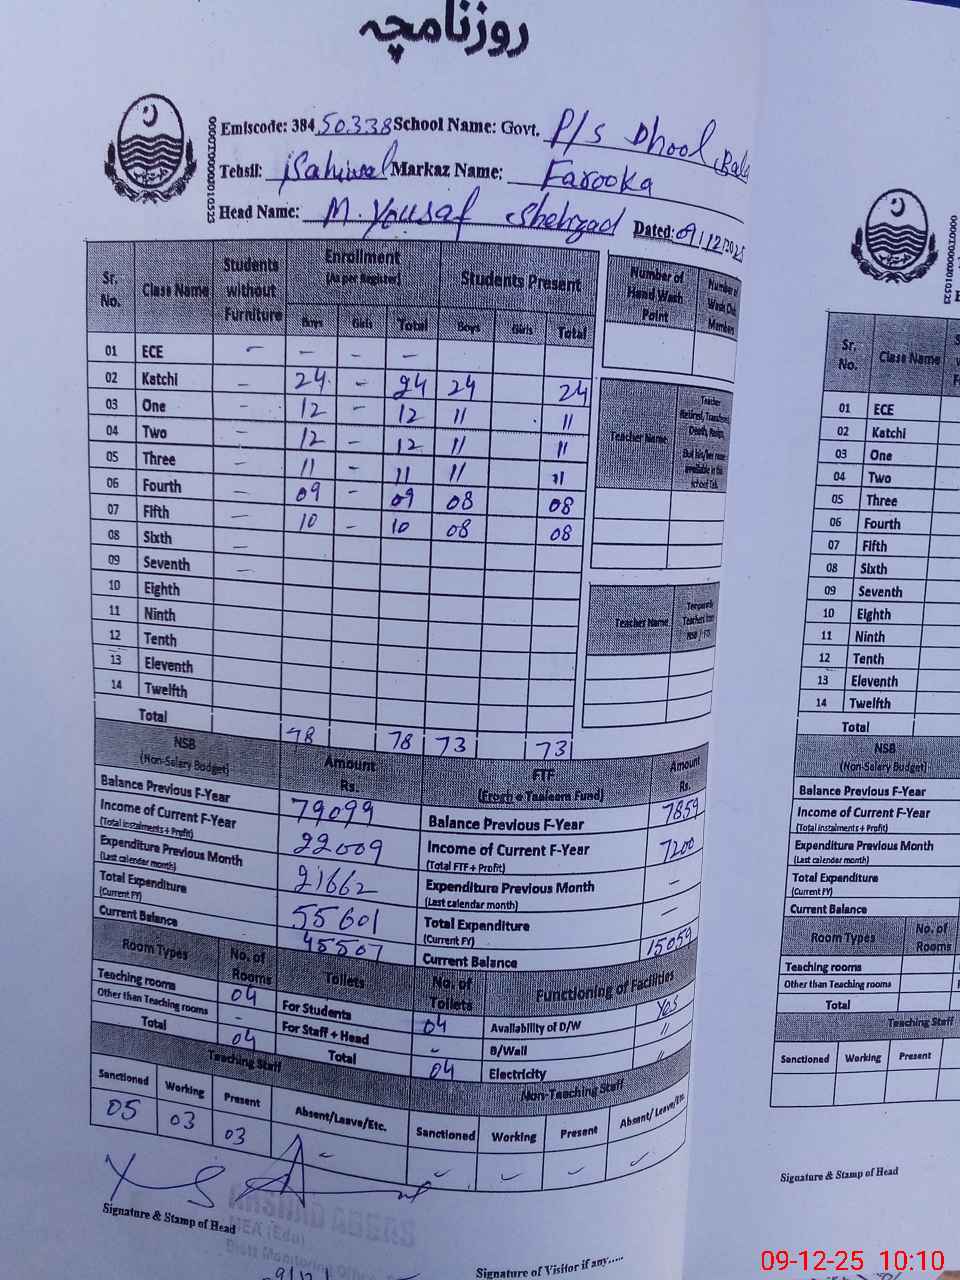 روزنامچہ
Emiscode: 384 50338 School Name: Govt. P/S Dhool Bala
Tehsil: Sahiwal Markaz Name: Farooka
Head Name: M. Yousaf Shehzad Dated: 09/12/2025
Sr. No. Class Name Students without Furniture Enrollment (As per Register) Students Present
Boys Girls Total Boys Girls Total
01 ECE - - - -
02 Katchi - 24 - 24 24 24
03 One - 12 - 12 11 11
04 Two - 12 - 12 11 11
05 Three - 11 - 11 11 11
06 Fourth - 09 - 09 08 08
07 Fifth - 10 - 10 08 08
08 Sixth -
09 Seventh -
10 Eighth
11 Ninth
12 Tenth
13 Eleventh
14 Twelfth
Total 78 78 73 73
Number of Hand Wash Point Number of Wash Club Members
Teacher Name Teacher Retired, Transfered, Death, Resign, But his/her name available in the school Tab.
Teacher Name Temporary Teachers from NSB / FTF
NSB (Non-Salary Budget) Amount Rs. FTF (Frogh e Taaleem Fund) Amount Rs.
Balance Previous F-Year 79099 Balance Previous F-Year 7859
Income of Current F-Year (Total instalments + Profit) 22009 Income of Current F-Year (Total FTF + Profit) 7200
Expenditure Previous Month (Last calendar month) 21662 Expenditure Previous Month (Last calendar month) -
Total Expenditure (Current FY) 55601 Total Expenditure (Current FY) -
Current Balance 45507 Current Balance 15059
Room Types No. of Rooms Toilets No. of Toilets Functioning of Facilities
Teaching rooms 04 For Students 04 Availability of D/W Yes
Other than Teaching rooms - For Staff + Head - B/Wall "
Total 04 Total 04 Electricity "
Teaching Staff Non-Teaching Staff
Sanctioned Working Present Absent/Leave/Etc. Sanctioned Working Present Absent/Leave/Etc.
05 03 03 - - - - -
Signature & Stamp of Head
Signature of Visitor if any.....
Sr. No. Class Name
01 ECE
02 Katchi
03 One
04 Two
05 Three
06 Fourth
07 Fifth
08 Sixth
09 Seventh
10 Eighth
11 Ninth
12 Tenth
13 Eleventh
14 Twelfth
Total
NSB (Non-Salary Budget)
Balance Previous F-Year
Income of Current F-Year
(Total instalments + Profit)
Expenditure Previous Month
(Last calendar month)
Total Expenditure
(Current FY)
Current Balance
Room Types No. of Rooms
Teaching rooms
Other than Teaching rooms
Total
Teaching Staff
Sanctioned Working Present
Signature & Stamp of Head
09-12-25 10:10